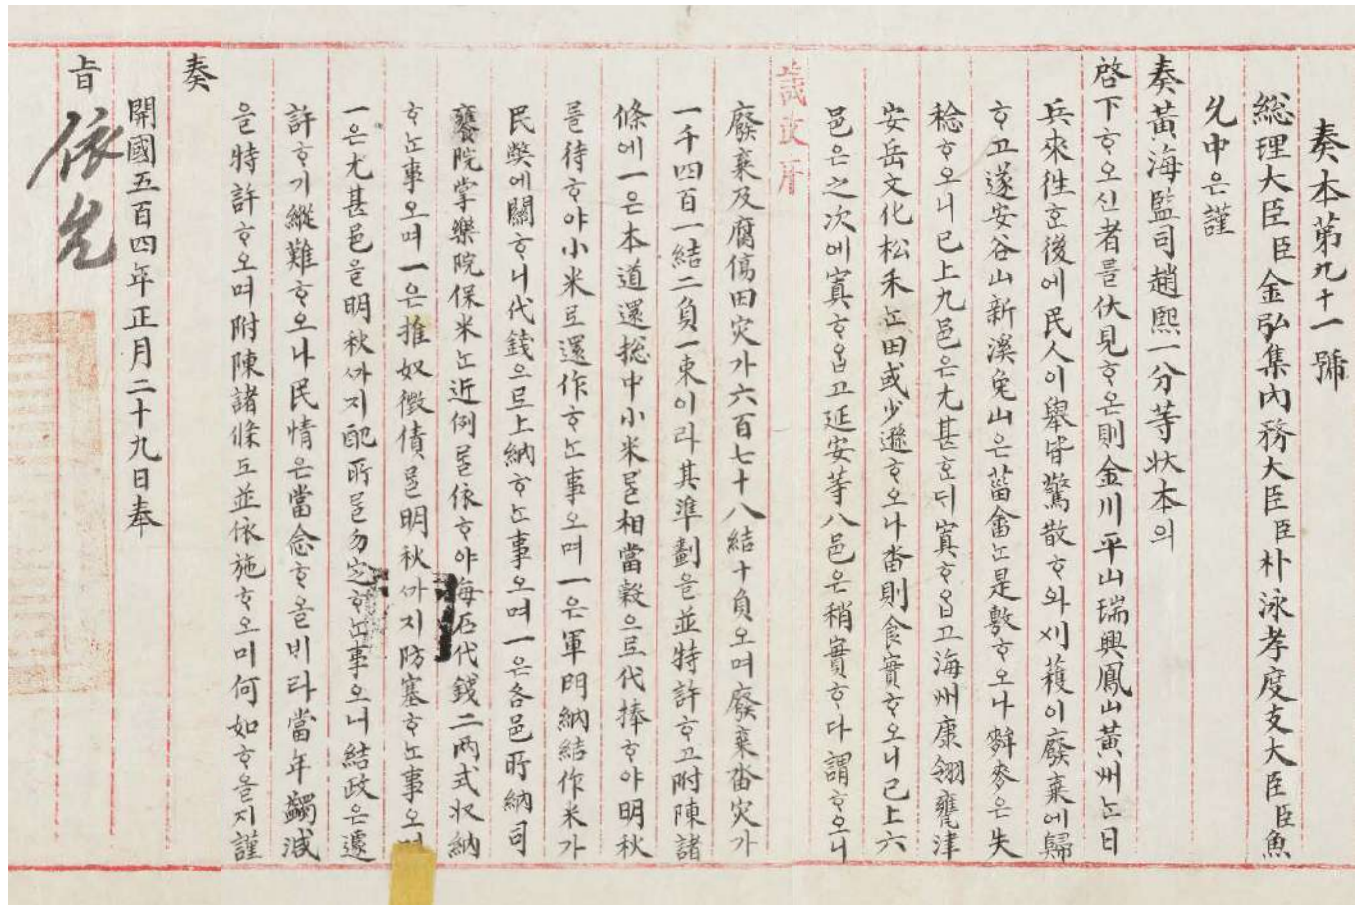 奏本第九十一號
総理大臣臣金弘集內務大臣臣朴泳孝度支大臣臣魚
允中은謹
奏黃海監司趙熙一分等狀本의
啓下ᄒᆞ오신者를伏見ᄒᆞ온則金川平山瑞興鳳山黃州ᄂᆞᆫ日
兵來徃ᄒᆞᆫ後에民人이擧皆驚散ᄒᆞ와刈穫이廢棄에歸
ᄒᆞ고遂安谷山新溪兔山은菑畬ᄂᆞᆫ是敷ᄒᆞ오나麰麥은失
稔ᄒᆞ오니已上九邑은尤甚ᄒᆞᆫ디寘ᄒᆞ웁고海州康翎甕津
安岳文化松禾ᄂᆞᆫ田或少遜ᄒᆞ오나畓則食實ᄒᆞ오니已上六
邑은之次에寘ᄒᆞ웁고延安等八邑은稍實ᄒᆞ다謂ᄒᆞ오니
議政府
廢棄及腐傷田灾가六百七十八結十負오며廢棄畓灾가
一千四百一結二負一束이라其準劃을並特許ᄒᆞ고附陳諸
條에一은本道還摠中小米를相當穀으로代捧ᄒᆞ야明秋
를待ᄒᆞ야小米로還作ᄒᆞᄂᆞᆫ事오며一은軍門納結作米가
民獘에關ᄒᆞ니代錢으로上納ᄒᆞᄂᆞᆫ事오며一은各邑所納司
饔院掌樂院保米ᄂᆞᆫ近例를依ᄒᆞ야每石代錢二兩式收納
ᄒᆞᄂᆞᆫ事오며一은推奴徵債를明秋ᄭᆞ지防塞ᄒᆞᄂᆞᆫ事오며
一은尤甚邑을明秋ᄭᆞ지配所를勿定ᄒᆞᄂᆞᆫ事오니結政은遽
許ᄒᆞ기縱難ᄒᆞ오나民情은當念ᄒᆞ올비라當年蠲減
을特許ᄒᆞ오며附陳諸條도並依施ᄒᆞ오미何如ᄒᆞ을지謹
奏
開國五百四年正月二十九日奉
旨依允